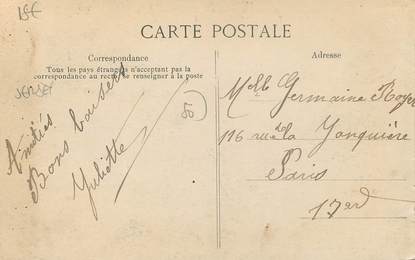 ISE
CARTE POSTALE
Correspondance
Tous les pays étrangers n'acceptant pas la
correspondance au recto, se renseigner à la poste
JERSEY
Amitiés
Bons baisers
Juliette
Adresse
Melle Germaine Royer
116 rue la Jonquière
Paris
17e